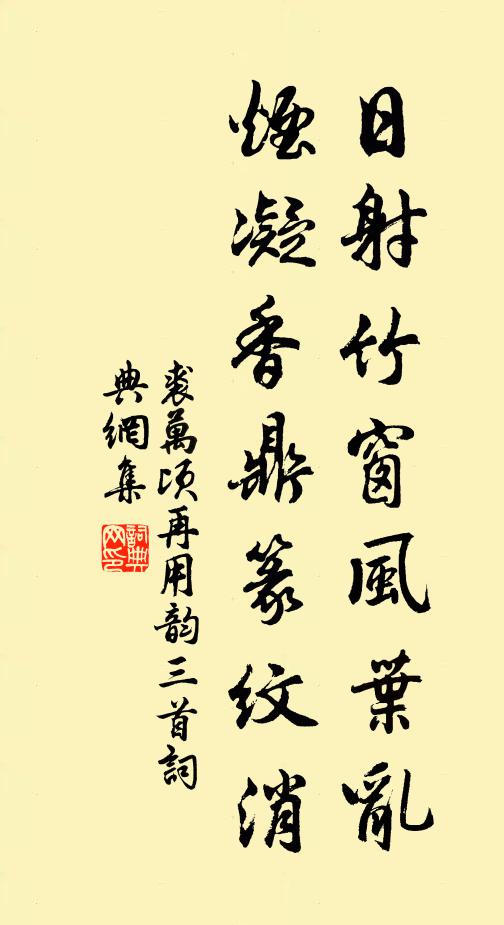 日射竹窗風葉亂
煙凝香鼎篆紋消
裘萬頃再用韵三首詞
典網集
詞典
网印